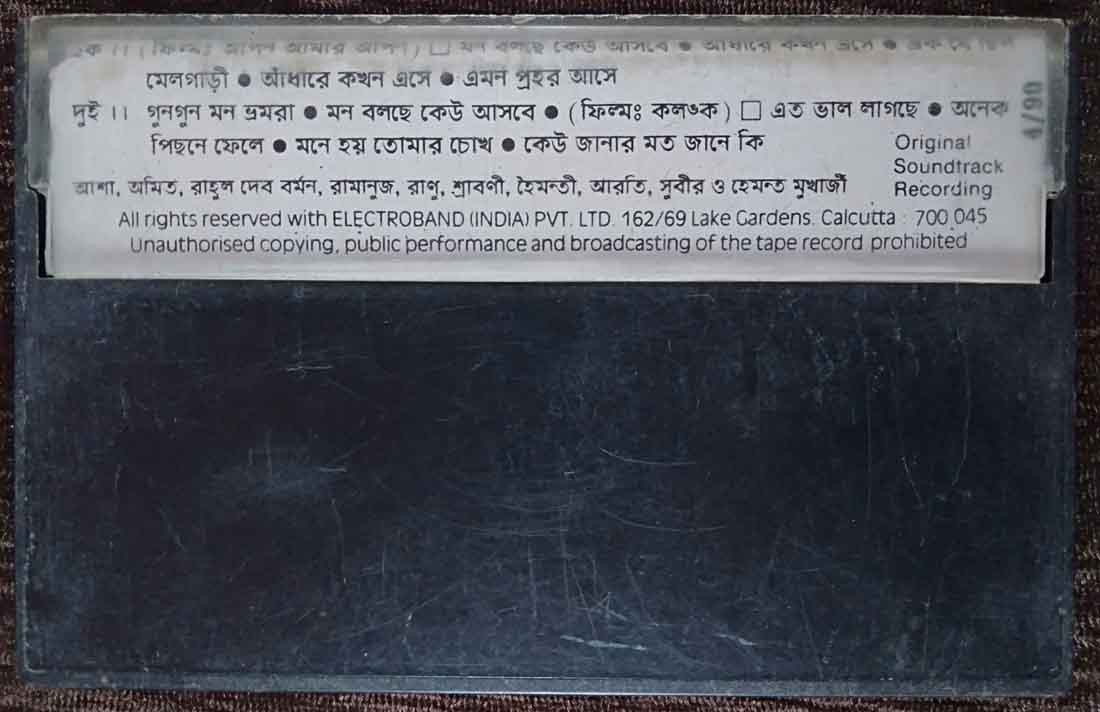 এক ।। (ফিল্মঃ আপন আমার আপন) □ মন বলছে কেউ আসবে ● আঁধারে কখন এসে ●
মেলগাড়ী ● আঁধারে কখন এসে ● এমন প্রহর আসে
দুই ।। গুনগুন মন ভ্রমরা ● মন বলছে কেউ আসবে ● (ফিল্মঃ কলঙক) □ এত ভাল লাগছে ● অনেক
পিছনে ফেলে ● মনে হয় তোমার চোখ ● কেউ জানার মত জানে কি
আশা, অমিত, রাহুল দেব বর্মন, রামানুজ, রাণু, শ্রাবণী, হৈমন্তী, আরতি, সুবীর ও হেমন্ত মুখার্জী
Original
Soundtrack
Recording
All rights reserved with ELECTROBAND (INDIA) PVT. LTD. 162/69 Lake Gardens. Calcutta : 700 045
Unauthorised copying, public performance and broadcasting of the tape record prohibited
4/90